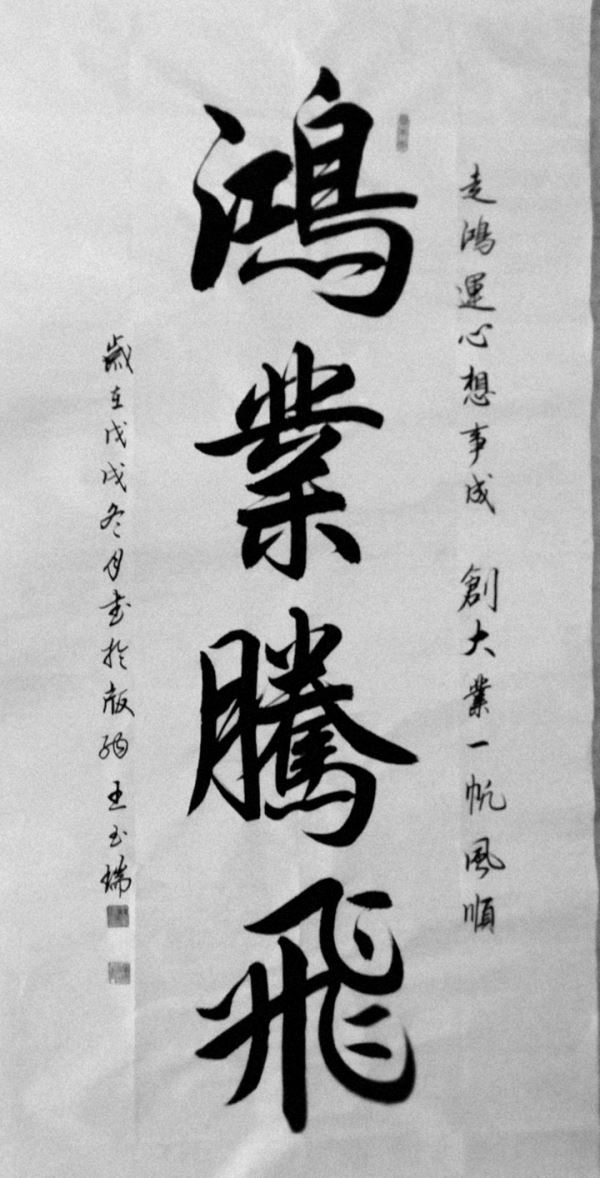 走鴻運心想事成 創大業一帆風順
鴻業騰飛
歲在戊戌冬月書於版納王玉瑞